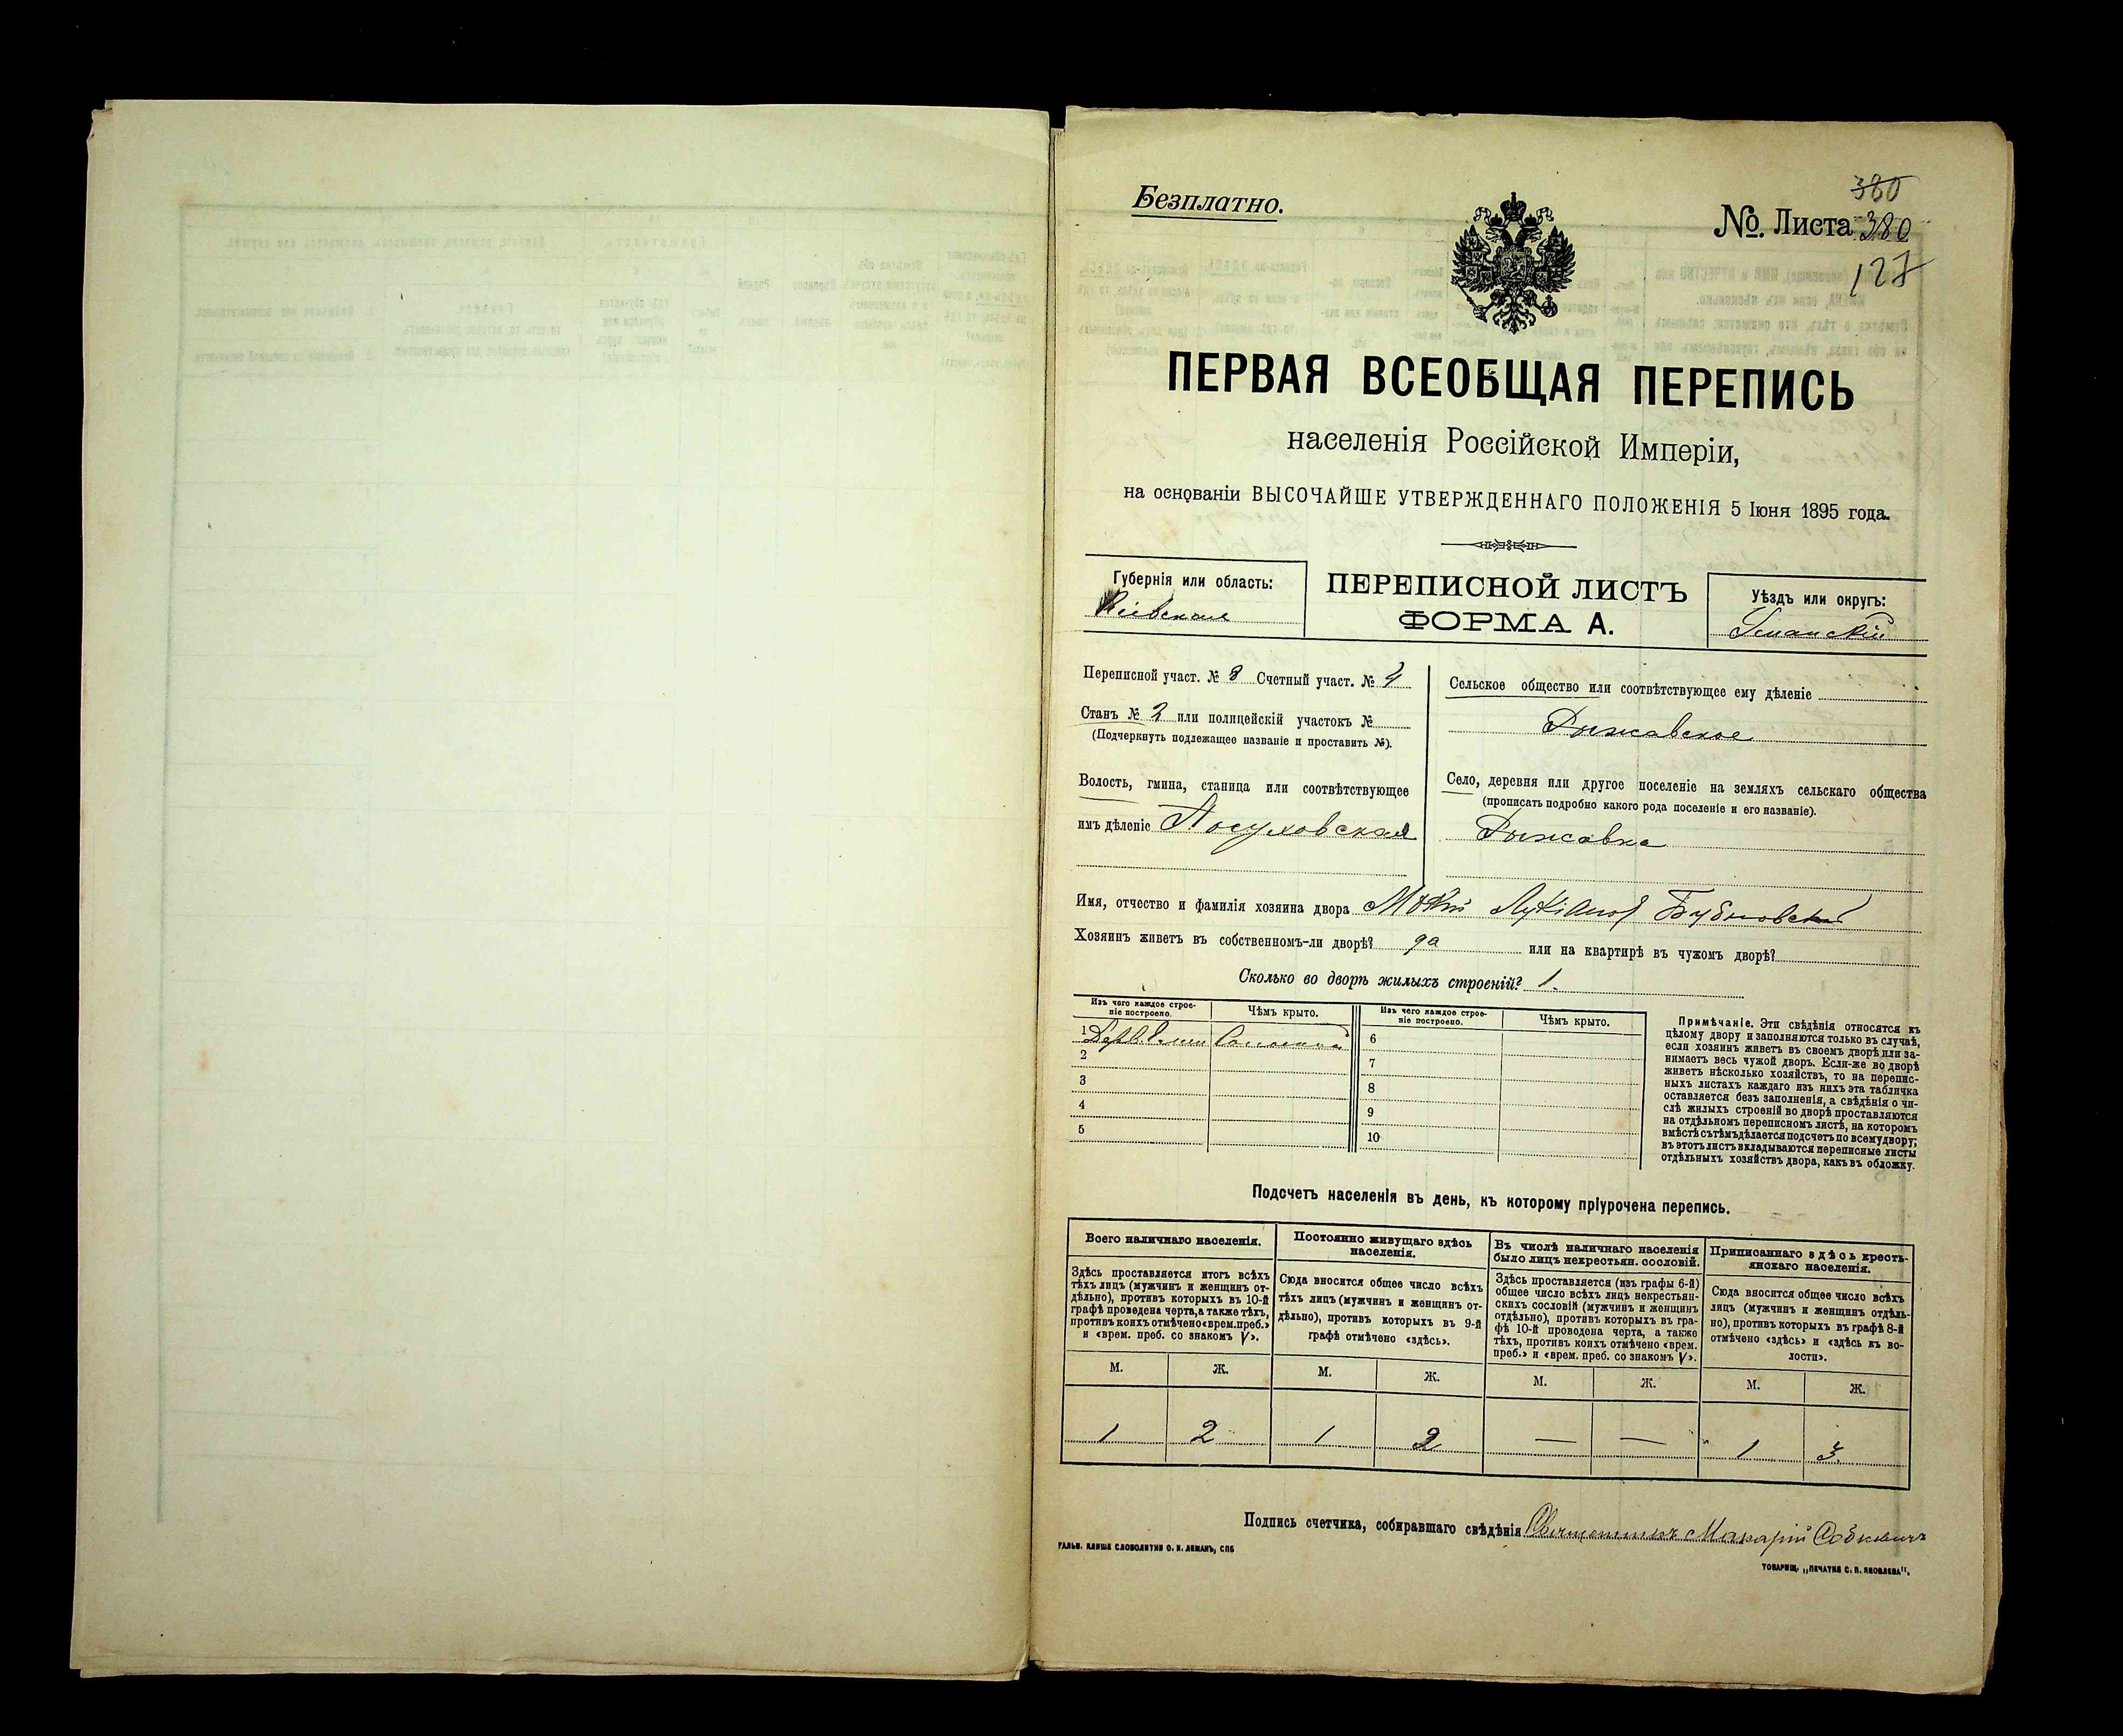 Безплатно.
380
No. Листа 380
127
ПЕРВАЯ ВСЕОБЩАЯ ПЕРЕПИСЬ
населенія Россійской Имперіи,
на основаніи ВЫСОЧАЙШЕ УТВЕРЖДЕННАГО ПОЛОЖЕНІЯ 5 Іюня 1895 года.
Губернія или область:
Кіевская
ПЕРЕПИСНОЙ ЛИСТЪ
ФОРМА А.
Уѣздъ или округъ:
Уманскій
Переписной участ. № 8 Счетный участ. № 4
Станъ № 2 или полицейскій участокъ №
(Подчеркнуть подлежащее названіе и проставить №).
Волость, гмина, станица или соотвѣтствующее
имъ дѣленіе
Сельское общество или соотвѣтствующее ему дѣленіе
Рыжавское
Село, деревня или другое поселеніе на земляхъ сельскаго общества
(прописать подробно какого рода поселеніе и его названіе).
Рыжавка
Имя, отчество и фамилія хозяина двора Мокій Лукіановъ Бубновскій
Хозяинъ живетъ въ собственномъ-ли дворѣ? да или на квартирѣ въ чужомъ дворѣ?
Сколько во дворѣ жилыхъ строеній? 1.
Изъ чего каждое строе-
ніе построено.
Чѣмъ крыто.
1
2
3
4
5
Изъ чего каждое строе-
ніе построено.
Чѣмъ крыто.
6
7
8
9
10
Примѣчаніе. Эти свѣдѣнія относятся къ
цѣлому двору и заполняются только въ случаѣ,
если хозяинъ живетъ въ своемъ дворѣ или за-
нимаетъ весь чужой дворъ. Если-же во дворѣ
живетъ нѣсколько хозяйствъ, то на перепис-
ныхъ листахъ каждаго изъ нихъ эта табличка
оставляется безъ заполненія, а свѣдѣнія о чи-
слѣ жилыхъ строеній во дворѣ проставляются
на отдѣльномъ переписномъ листѣ, на которомъ
вмѣстѣ съ тѣмъ дѣлается подсчетъ по всему двору;
въ этотъ листъ вкладываются переписные листы
отдѣльныхъ хозяйствъ двора, какъ въ обложку.
Подсчетъ населенія въ день, къ которому пріурочена перепись.
Всего наличнаго населенія.
Здѣсь проставляется итогъ всѣхъ
тѣхъ лицъ (мужчинъ и женщинъ от-
дѣльно), противъ которыхъ въ 10-й
графѣ проведена черта, а также тѣхъ,
противъ коихъ отмѣчено «врем. преб.»
и «врем. преб. со знакомъ V».
М. Ж.
1 2
Постоянно живущаго здѣсь
населенія.
Сюда вносится общее число всѣхъ
тѣхъ лицъ (мужчинъ и женщинъ от-
дѣльно), противъ которыхъ въ 9-й
графѣ отмѣчено «здѣсь».
М. Ж.
1 2
Въ числѣ наличнаго населенія
было лицъ некрестьян. сословій.
Здѣсь проставляется (изъ графы 6-й)
общее число всѣхъ лицъ некрестьян-
скихъ сословій (мужчинъ и женщинъ
отдѣльно), противъ которыхъ въ гра-
фѣ 10-й проведена черта, а также
тѣхъ, противъ коихъ отмѣчено «врем.
преб.» и «врем. преб. со знакомъ V».
М. Ж.
— —
Приписаннаго здѣсь кресть-
янскаго населенія.
Сюда вносится общее число всѣхъ
лицъ (мужчинъ и женщинъ отдѣль-
но), противъ которыхъ въ графѣ 8-й
отмѣчено «здѣсь» и «здѣсь къ во-
лости».
М. Ж.
1 3.
Подпись счетчика, собиравшаго свѣдѣнія Священникъ Макарій
ГАЛЬВ. КЛИШЕ СЛОВОЛИТНИ О. И. ЛЕМАНЪ, СПБ
ТОВАРИЩ. „ПЕЧАТНЯ С. П. ЯКОВЛЕВА".